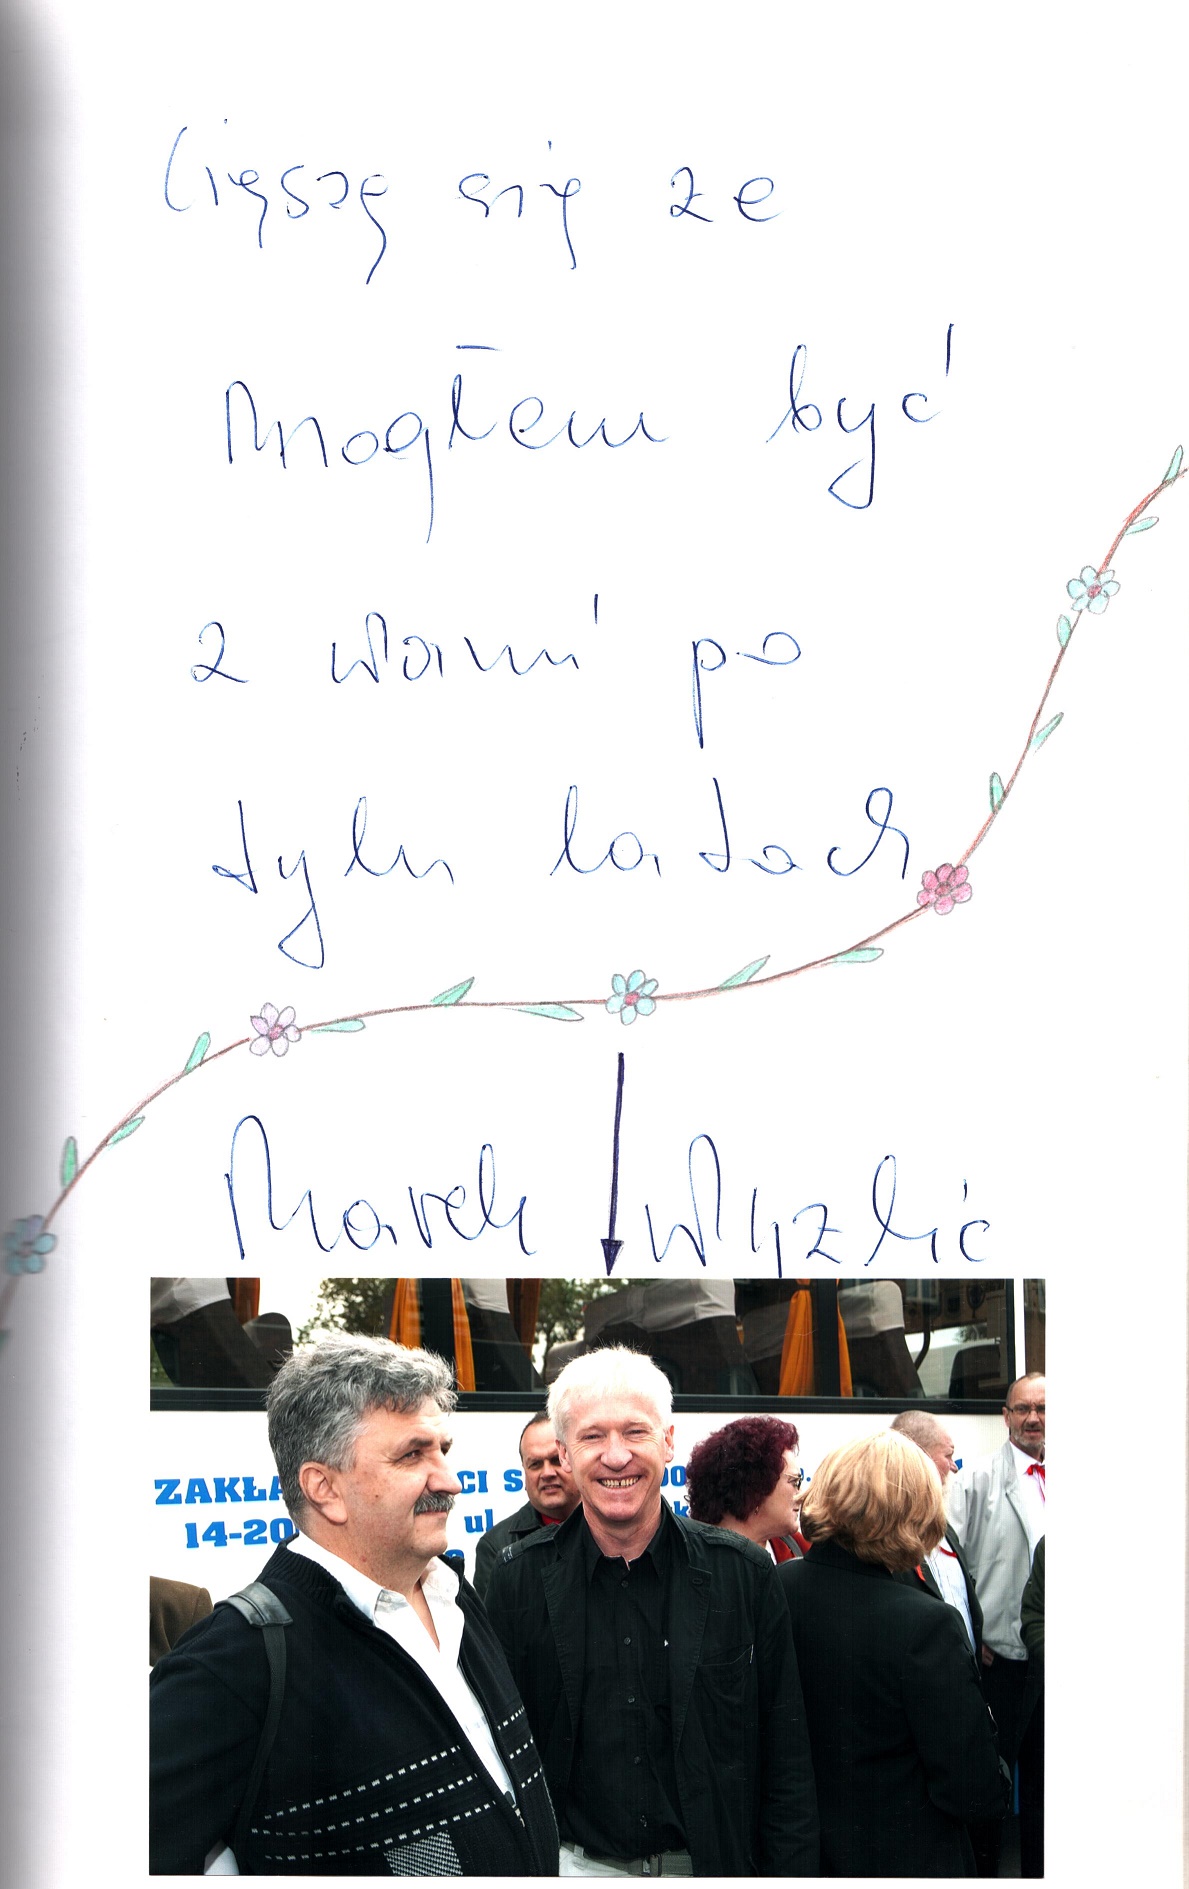 Cięszę się ze
mogłem być
z wami po
tylu latach
Marek Wyzlić
ZAKŁA CI S
14-20 ul